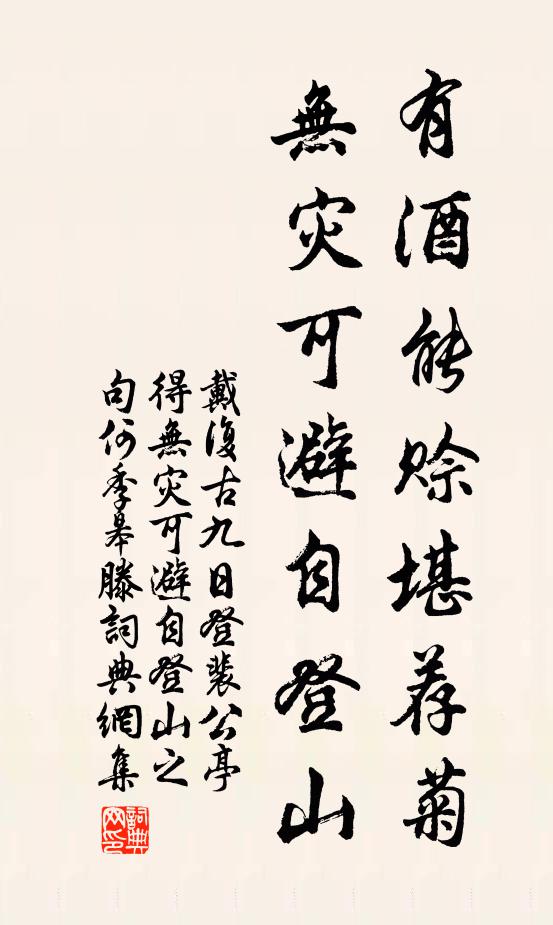 有酒能賒堪荐菊
無灾可避自登山
戴復古九日登裴公亭
得無灾可避自登山之
句何季皋賸詞典網集
詞典網印